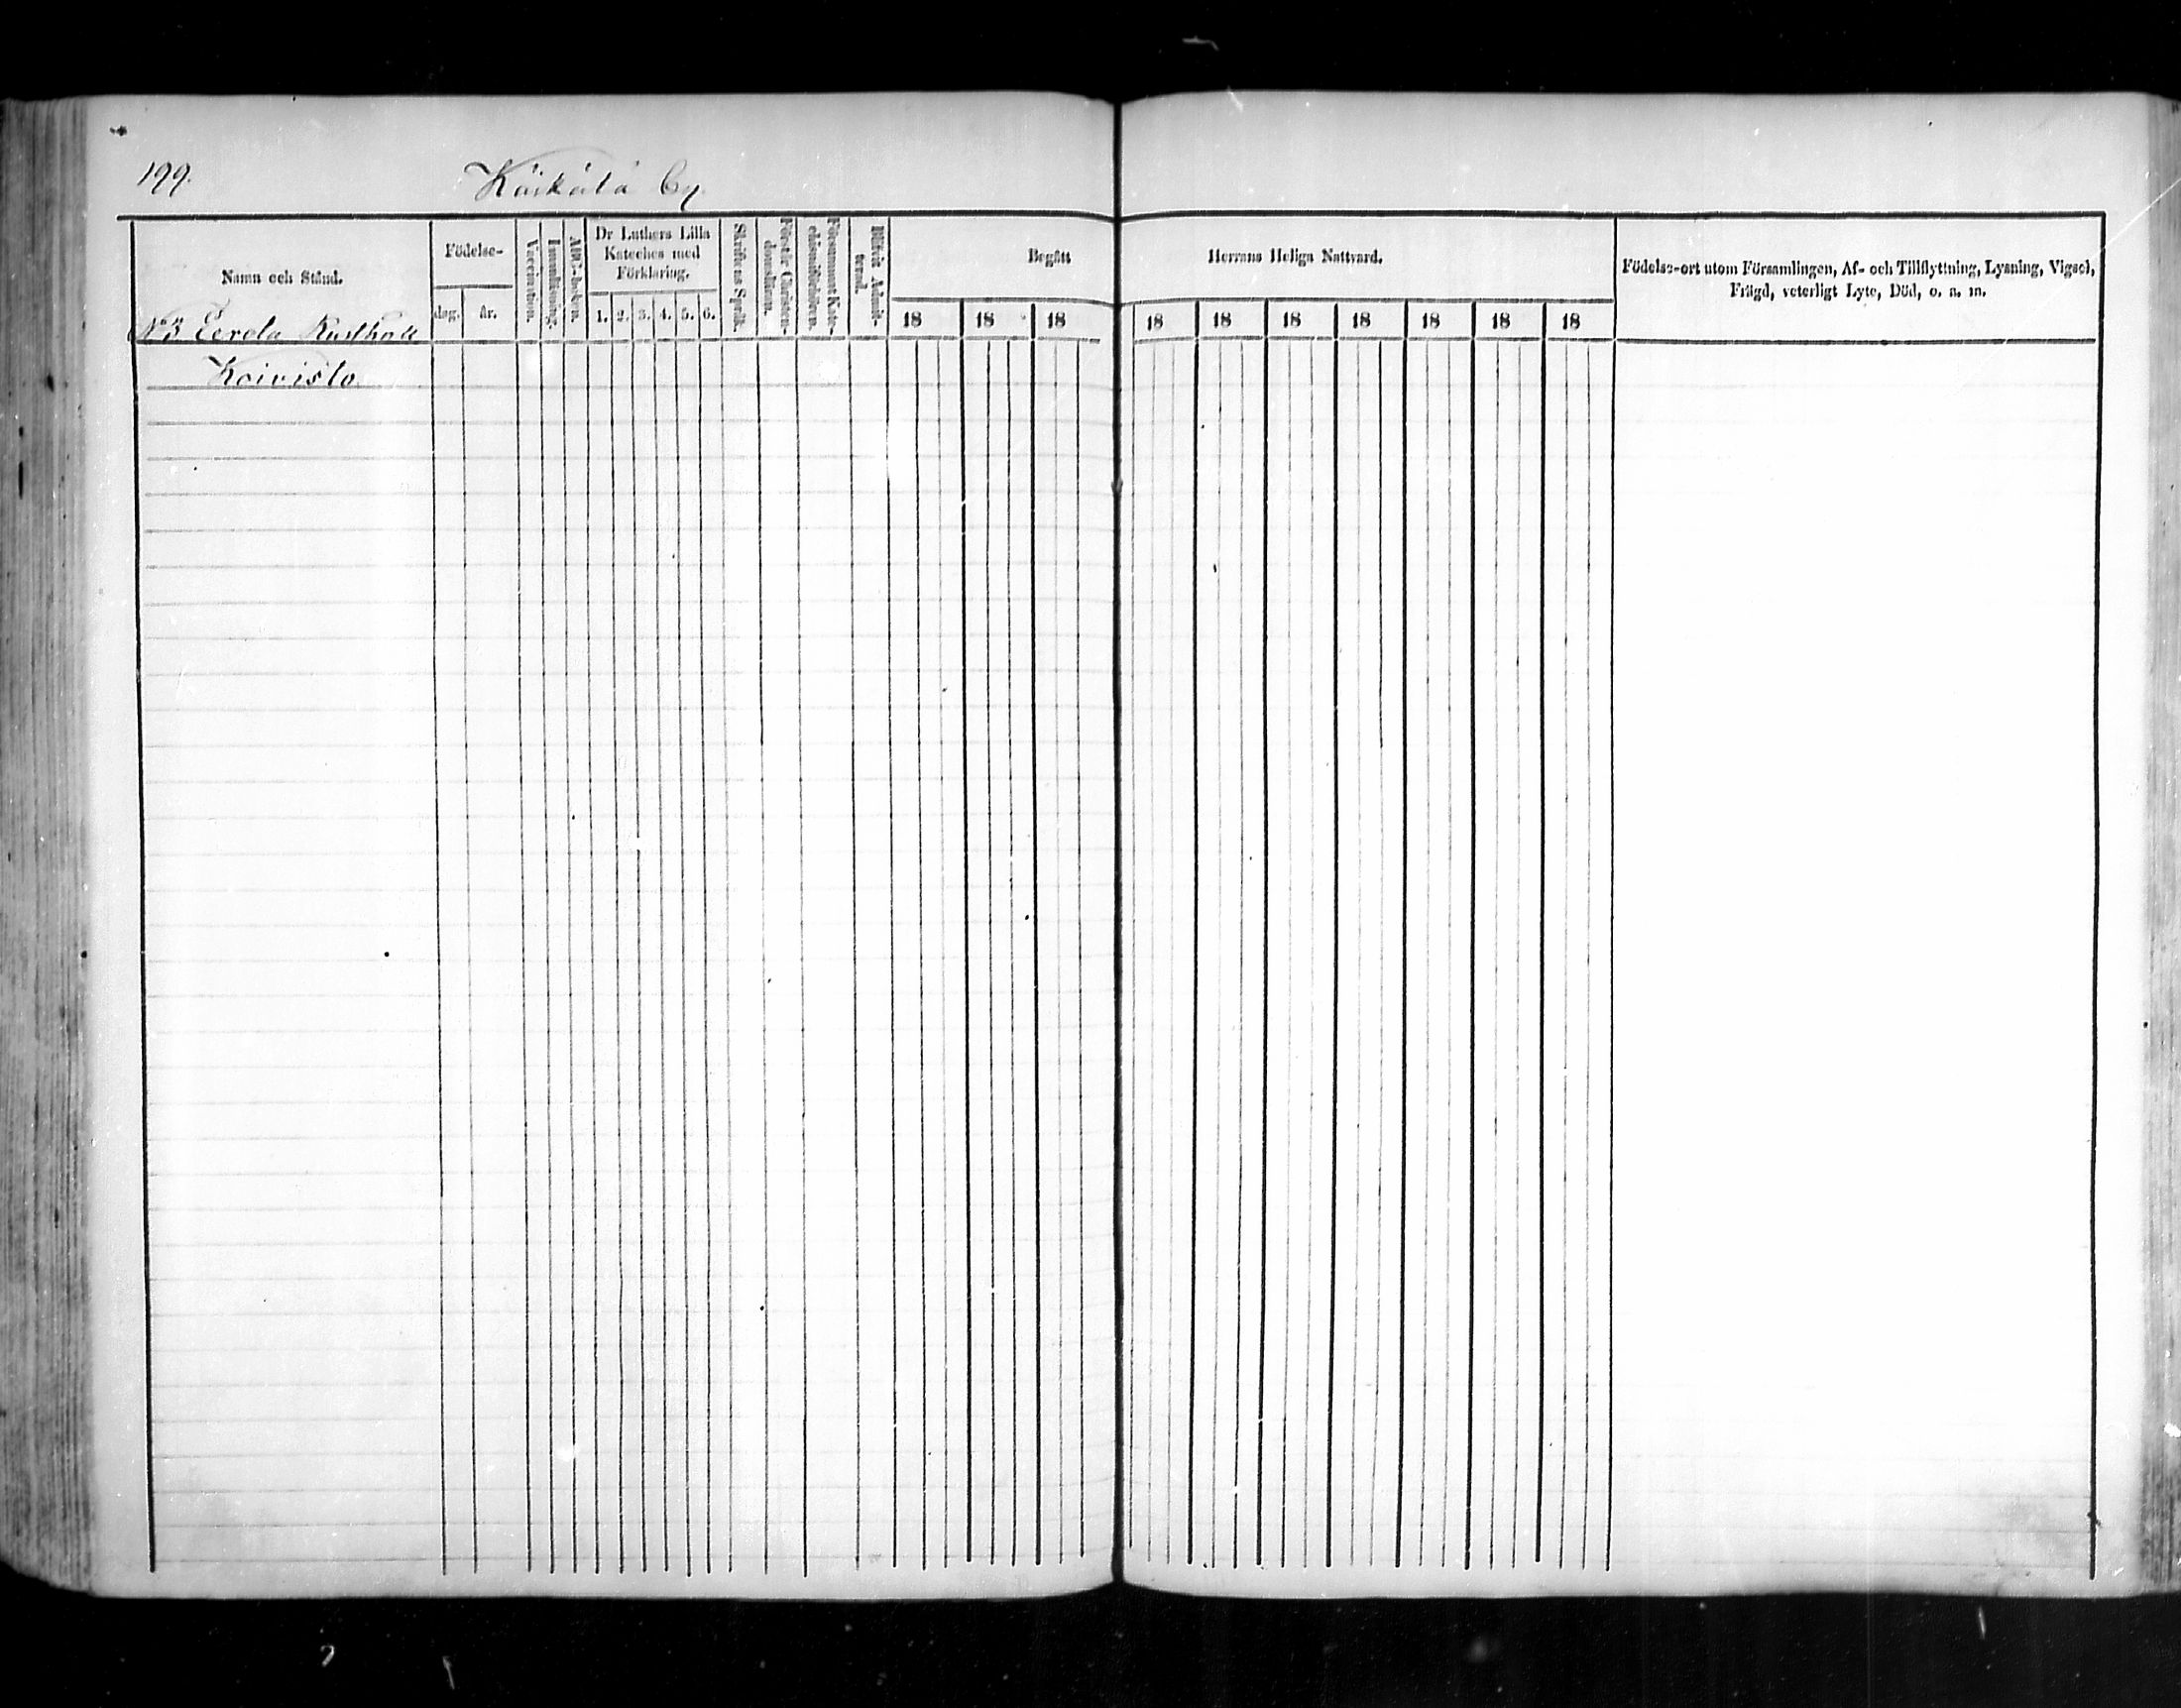 199.
Käikälä by.
Namn och Stånd.
Födelse-
dag.
år.
Vaccination.
Innanläsning.
ABC-boken.
Dr Luthers Lilla
Kateches med
Förklaring.
1. 2. 3. 4. 5. 6.
Skriftens Språk.
Förstår Christen-
domsläran.
Försummat Kate-
chismiförhören.
Blifvit Admit-
terad.
Begått
Herrans Heliga Nattvard.
18 18 18 18 18 18 18 18 18 18
Födelse-ort utom Församlingen, Af- och Tillflyttning, Lysning, Vigsel,
Frägd, veterligt Lyte, Död, o. a. m.
No 3 Eerola Rusthåll
Koivisto